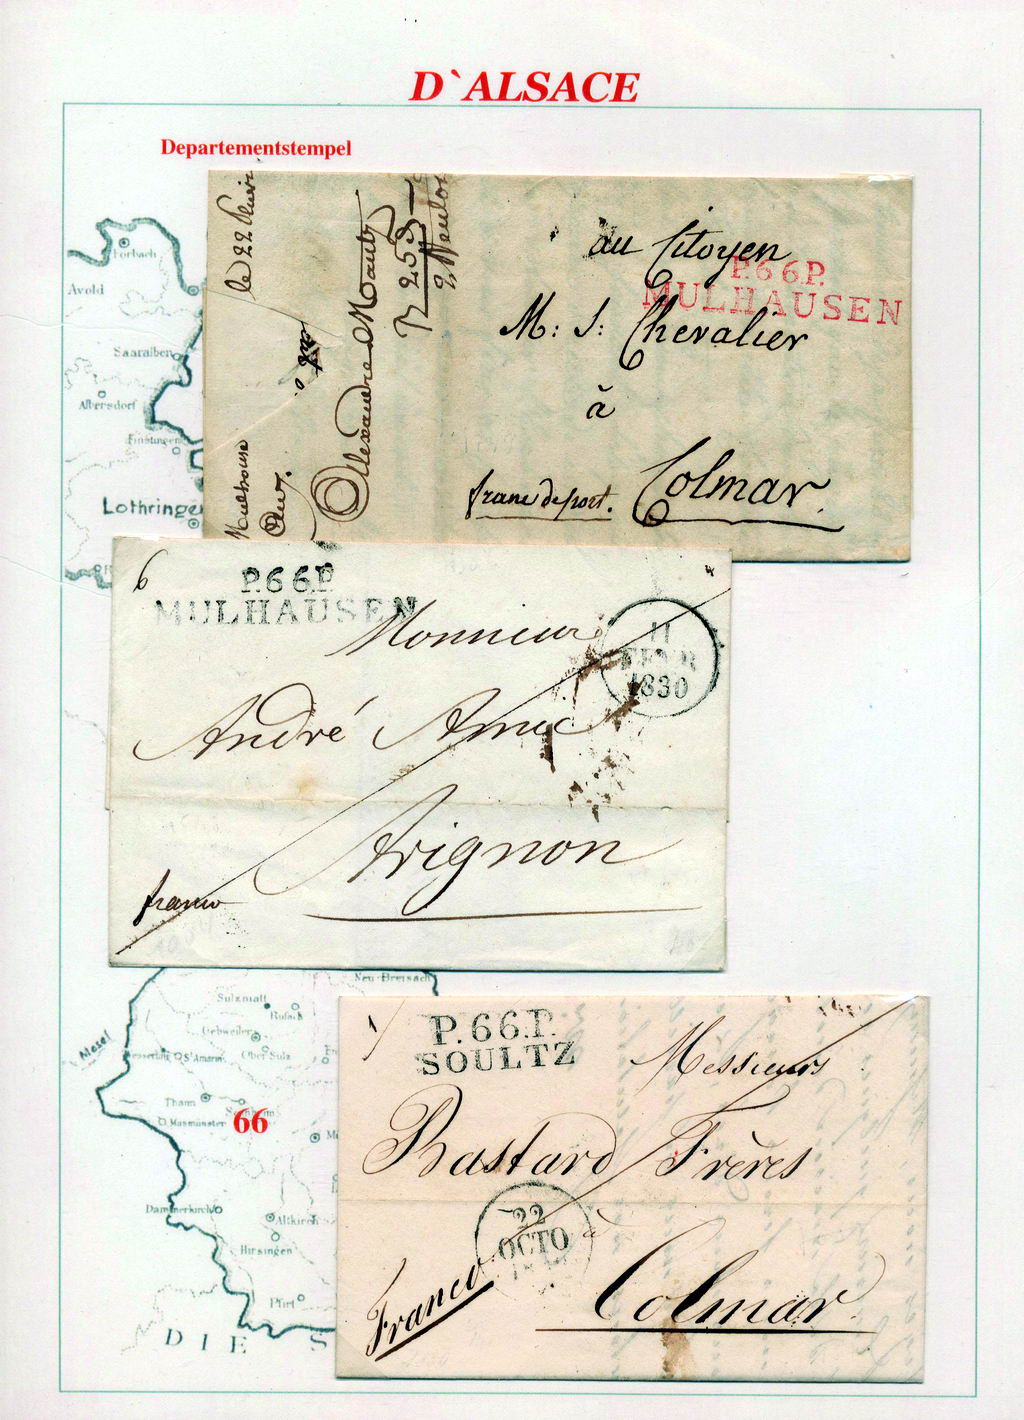 D`ALSACE
Departementstempel
Forbach
Avold
Saaralben
Albersdorf
Finstingen
Lothringen
le 22
Mulhouse
Alexandre
255
au Citoyen
P.66P.
MULHAUSEN
M: J: Chevalier
à
Colmar.
franc de port.
6
P.66P.
MULHAUSEN
Monsieur
11
FEVR
1830
André Amic
Avignon
franco
Neu-Breisach
Sulzmatt
Rufach
Gebweiler
Mosel
St Amarin
Ober Sulz
Thann
Masmünster
66
Dammerkirch
Altkirch
Hirsingen
Pfirt
DIE S
P.66.P.
SOULTZ
Messieurs
Bastard Frères
22
OCTO
à
Franco
Colmar.